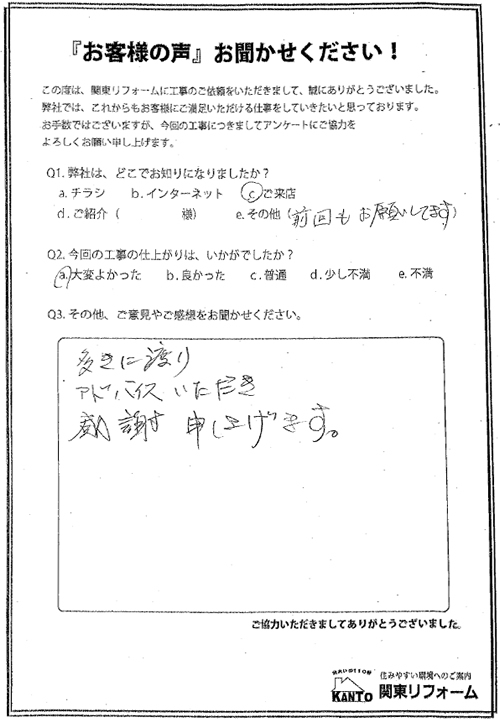 『お客様の声』お聞かせください！
この度は、関東リフォームに工事のご依頼をいただきまして、誠にありがとうございました。
弊社では、これからもお客様にご満足いただける仕事をしていきたいと思っております。
お手数ではございますが、今回の工事につきましてアンケートにご協力を
よろしくお願い申し上げます。
Q1. 弊社は、どこでお知りになりましたか？
a. チラシ b. インターネット c. ご来店
d. ご紹介（ 様） e. その他（前回もお願いしてます）
Q2. 今回の工事の仕上がりは、いかがでしたか？
a. 大変よかった b. 良かった c. 普通 d. 少し不満 e. 不満
Q3. その他、ご意見やご感想をお聞かせください。
多きに渡り
アドバイスいただき
感謝申し上げます。
ご協力いただきましてありがとうございました。
住みやすい環境へのご案内
KANTO 関東リフォーム